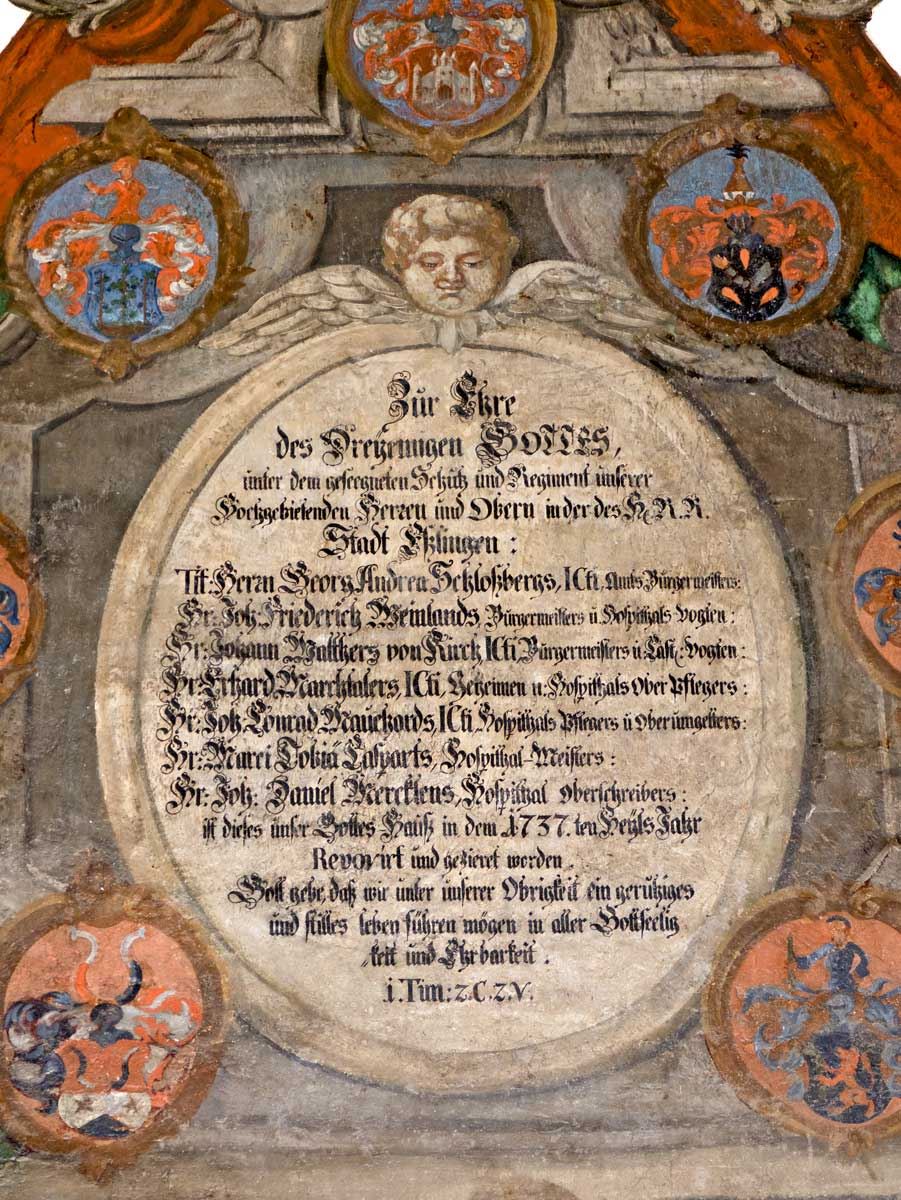 Zür Ehre
des Dreyeinigen GOTTES,
unter dem geseegneten Schütz und Regiment unserer
Hochgebietenden Herren und Obern in der des H. R. R.
Stadt Eßlingen :
Tit: Herrn Georg Andreæ Schloßbergs, ICti, Amts Bürgermeisters:
Hr: Joh: Friederich Weinlands, Bürgermeisters ü. Hospithals Vogten:
Hr: Johann Walthers von Kirch ICti Bürgermeisters ü. Cast: Vogten:
Hr: Erhard Marchthalers, ICti, Geheimen u. Hospithals Ober Pflegers:
Hr: Joh Conrad Mauchards, ICti Hospithals Pflegers ü Oberumgelters:
Hr: Marci Tobiä Casparts, Hospithal-Meisters:
Hr: Joh: Daniel Mercklens, Hospithal Oberschreibers:
ist dieses unser Gottes Hauß in dem 1737. ten Heyls Jahr
Renovirt und gezieret worden.
Gott gebe, daß wir unter unserer Obrigkeit ein geruhiges
und stilles leben führen mögen in aller Gottseelig
keit und Ehrbarkeit.
i. Tim: 2. C. 2. V.